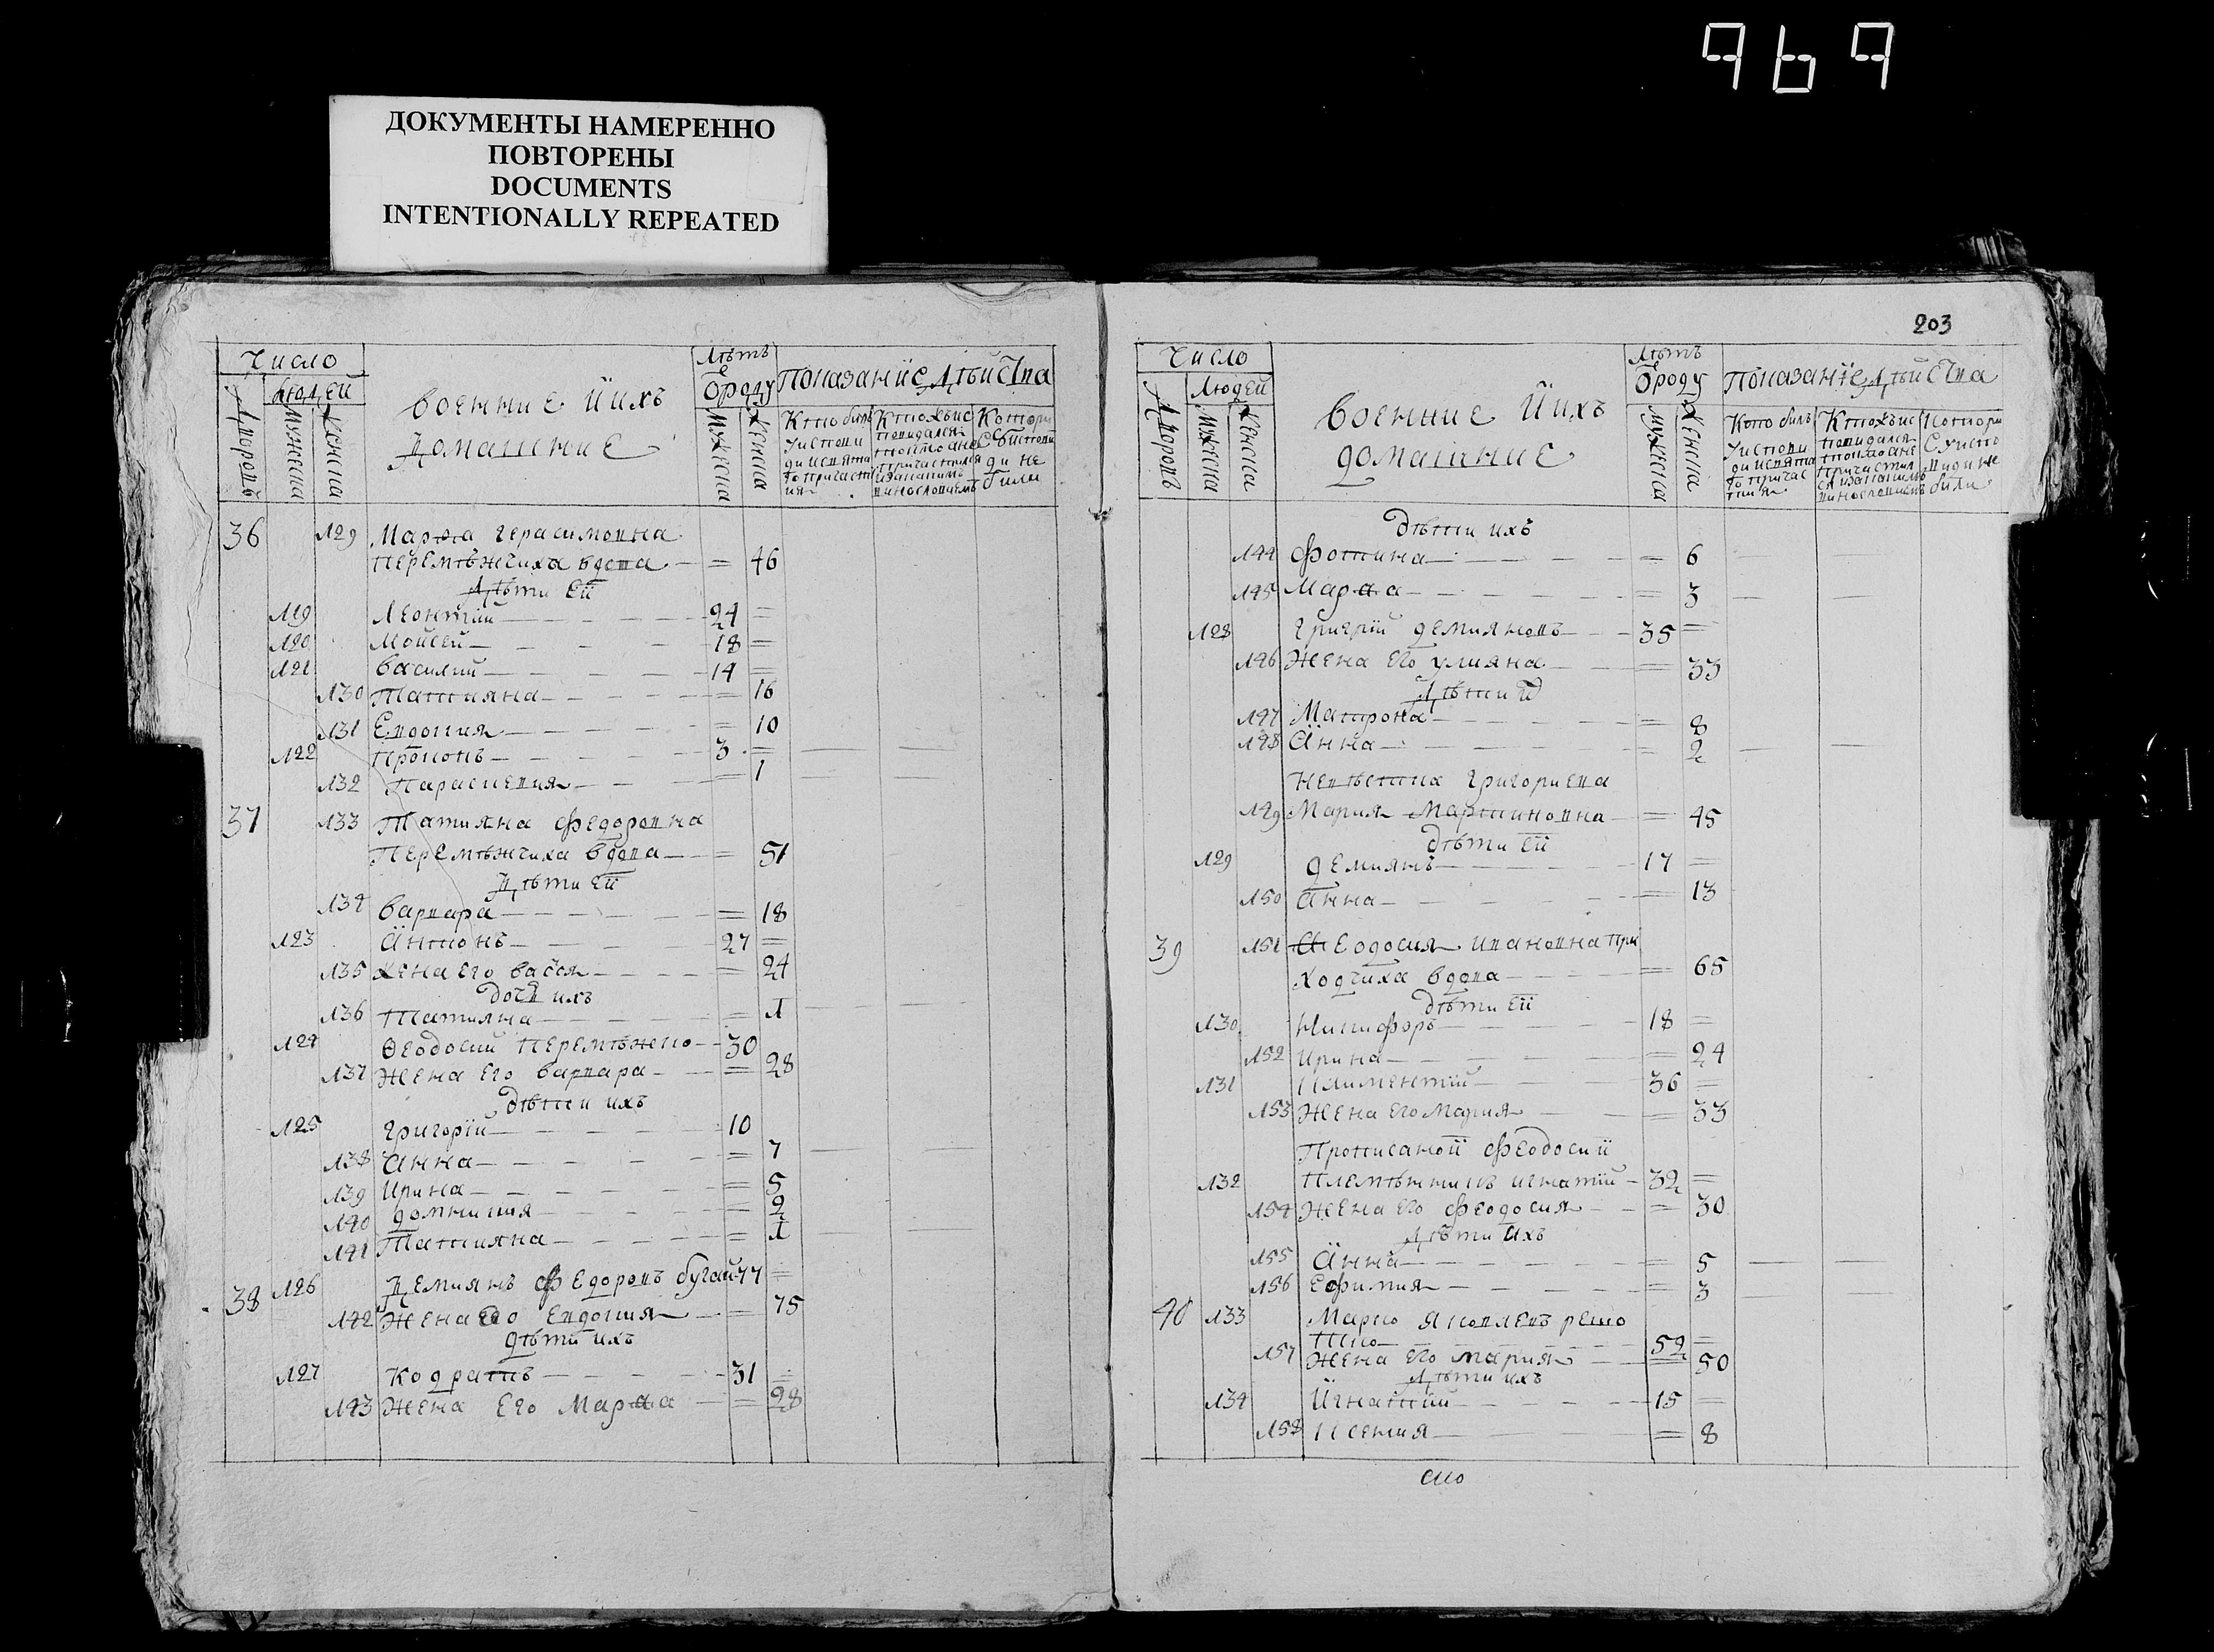 969
ДОКУМЕНТЫ НАМЕРЕННО
ПОВТОРЕНЫ
DOCUMENTS
INTENTIONALLY REPEATED
Число
Людей
Дворовъ
Мужеска
Женска
Военние и ихъ
домашние
Лѣтъ
ѿ роду
Мужеска
Женска
Показаніе дѣйства
36 129 Марѳа Герасимовна
Перемѣжчиха вдова = 46
Дѣти ей
119 Леонтій 24 =
120 Мойсей 18 =
121 Василий 14 =
130 Татияна = 16
131 Евдокия = 10
122 Прокопъ 3 =
132 Параскевия = 1
37 133 Татияна Федоровна
Перемѣжчиха вдова = 51
Дѣти ей
134 Варвара = 18
123 Антонъ 27 =
135 Жена его Васса = 24
Дочь ихъ
136 Татияна = 1
124 Ѳеодосий Перемѣжко 30
137 Жена его Варвара = 28
Дѣти ихъ
125 Григорій 10
138 Анна = 7
139 Ирина = 5
140 Домникия = 2
141 Татияна = 1
38 126 Демиянъ Федоровъ Бугай 77 =
142 Жена его Евдокия = 75
Дѣти ихъ
127 Кодратъ 31 =
143 Жена его Марѳа = 28
203
Число
Людей
Дворовъ
Мужеска
Женска
Военние и ихъ
домашние
Лѣтъ
ѿ роду
Мужеска
Женска
Показаніе дѣйства
Дѣти ихъ
144 Фотина = 6
145 Марѳа = 3
128 Григрій Демияновъ 35 =
146 Жена его Улияна = 33
Дѣти
147 Матрона = 8
148 Анна = 2
Невѣстка Григориева
149 Мария Мартиновна = 45
Дѣти ей
129 Демиянъ 17 =
150 Анна = 13
39 151 Феодосия Ивановна При
ходчиха вдова = 65
Дѣти ей
130 Никифоръ 18 =
152 Ирина = 24
131 Климентій 36 =
153 Жена его Мария = 33
Прописаной Феодосий
132 Племѣнникъ Игнатій 32 =
154 Жена его Феодосия = 30
Дѣти ихъ
155 Анна = 5
156 Ефимия = 3
40 133 Марко Яковлевъ Решо
тко 52 =
157 Жена его Мария = 50
Дѣти ихъ
134 Игнатий 15 =
158 Ксения = 8